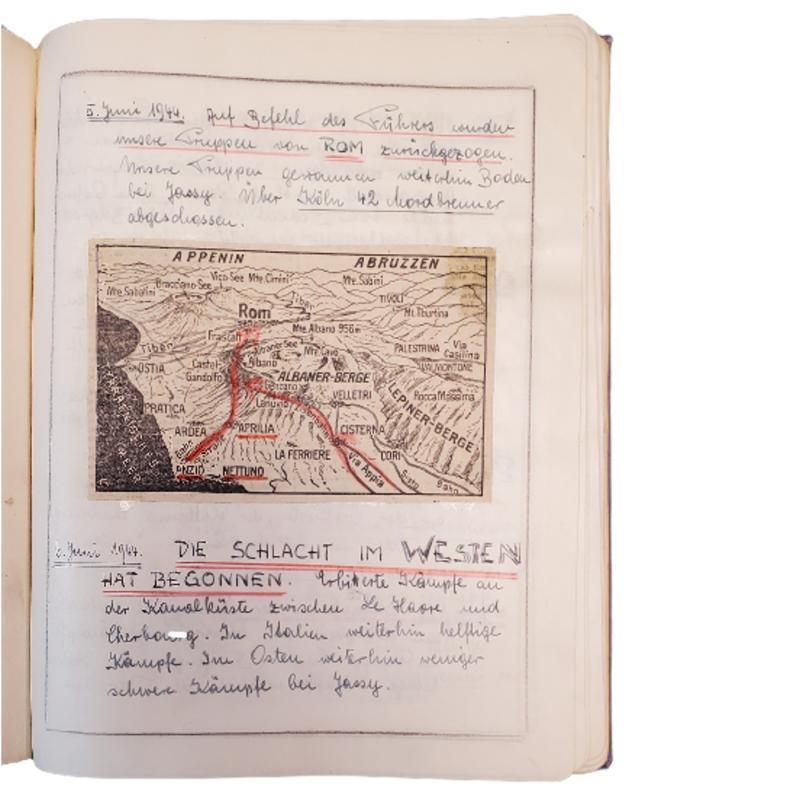 5. Juni 1944. Auf Befehl des Führers wurden
unsere Truppen von ROM zurückgezogen.
Unsere Truppen gewannen weiterhin Boden
bei Jassy. Über Köln 42 Mordbrenner
abgeschossen.
APPENIN ABRUZZEN
Vico-See Mte. Cimini Mte. Sabini
Mte. Sabatini Bracciano-See
Tiber TIVOLI
Rom Mt. Tiburtina
Mte. Albano 956m
Frascati
Tiber Albaner See Mte. Cavo PALESTRINA Via Casilina
OSTIA Castel Gandolfo Albano VALMONTONE
ALBANER-BERGE
Genzano Rocca Massima
Lanuvio VELLETRI LEPINER-BERGE
PRATICA
ARDEA APRILIA CISTERNA
LA FERRIERE CORI
ANZIO NETTUNO Via Appia Bahn
6. Juni 1944. DIE SCHLACHT IM WESTEN
HAT BEGONNEN. Erbitterte Kämpfe an
der Kanalküste zwischen Le Havre und
Cherbourg. In Italien weiterhin heftige
Kämpfe. Im Osten weiterhin weniger
schwere Kämpfe bei Jassy.